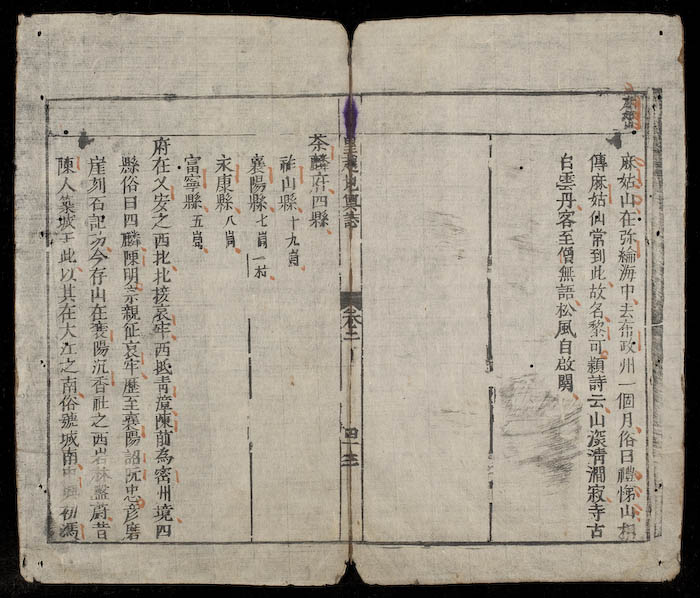 麻姑山在弥綸海中去布政州一個月俗曰禮悌山相
傳麻姑仙常到此故名黎可穎詩云山深淸澗寂寺古
白雲丹客至僧無語松風自啟關
皇越地輿誌
卷二
四十三
茶麟府四縣
祚山縣十九崗
襄陽縣七崗一村
永康縣八崗
富寧縣五崗
府在乂安之西北北接哀牢西抵青漳陳前為密州境四
縣俗曰四麟陳明宗親征哀牢歷至襄陽詔阮忠彥磨
崖刻石記功今存山在襄陽沉香社之西岩林盤蔚昔
陳人築城于此以其在大江之南俗號城南中興初馮